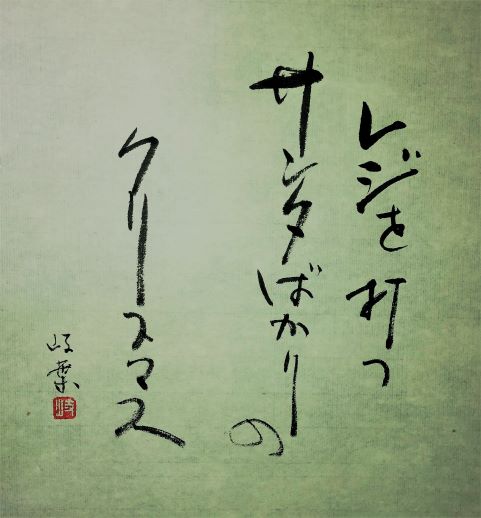 レジを打つ
サンタばかりの
クリスマス
岐葉